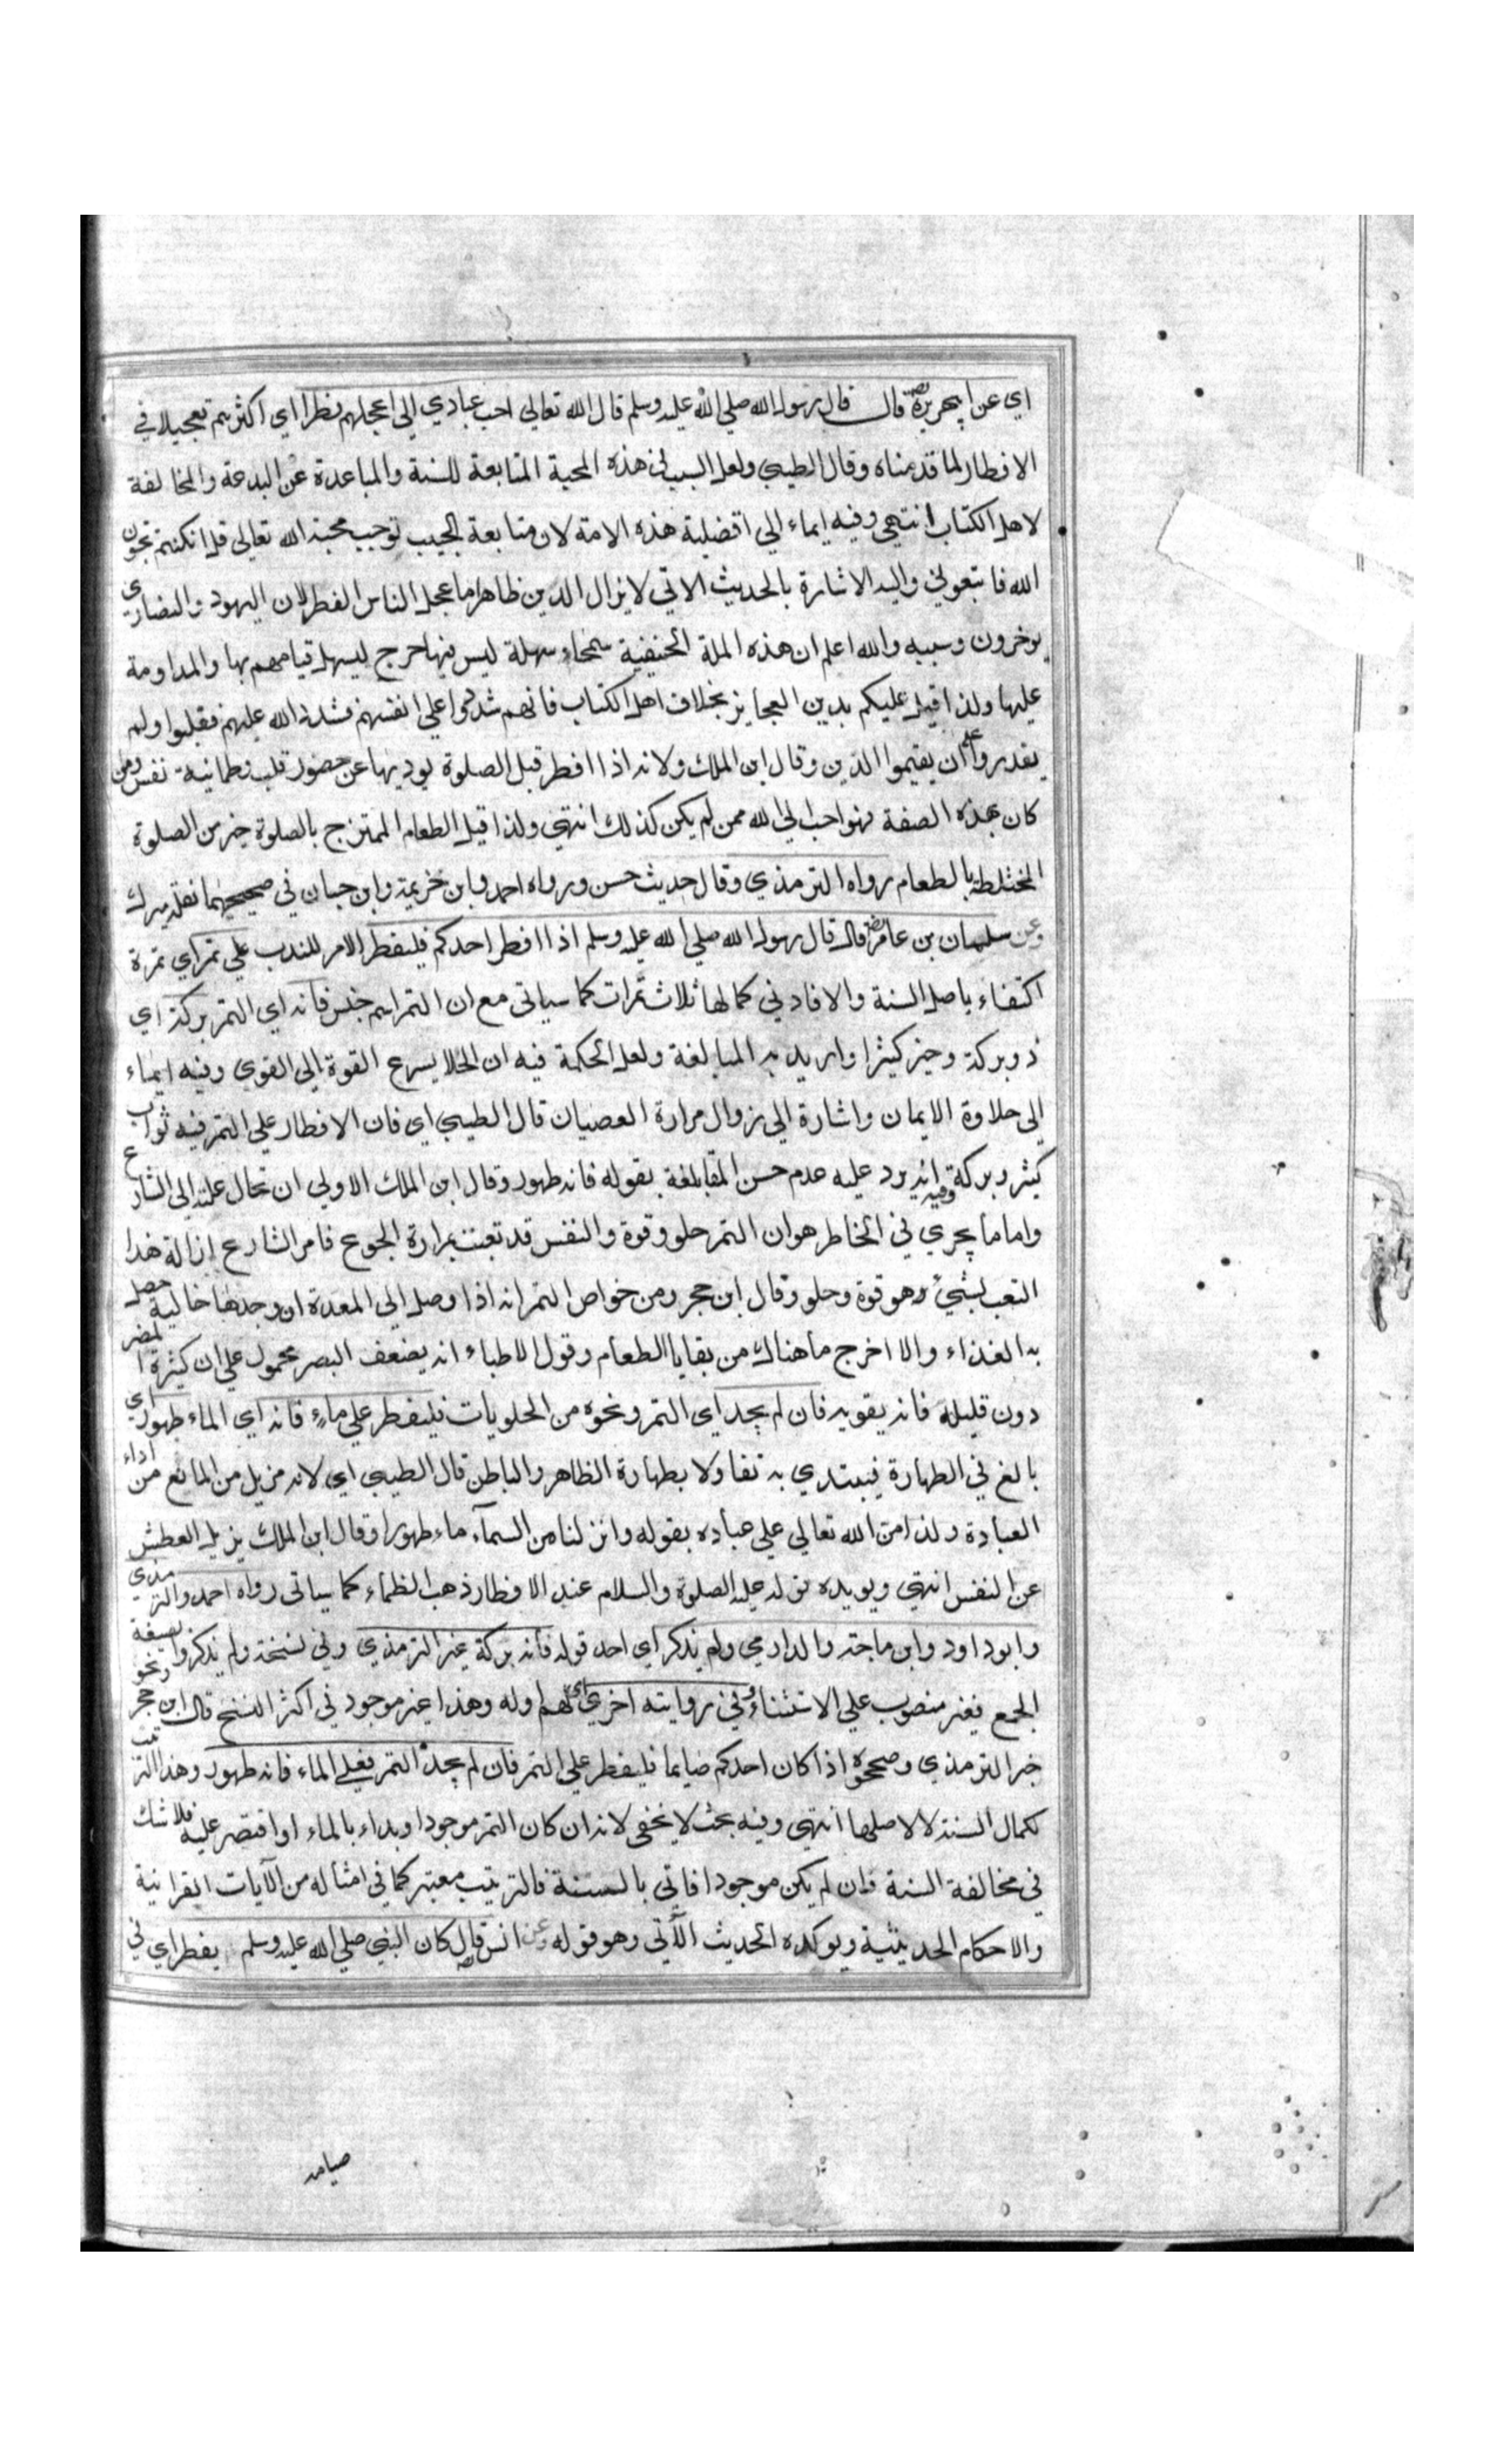 اي عن ابي هريرة رضه قال قال رسول الله صلي الله عليه وسلم قال الله تعالي احب عبادي الي اعجلهم فطرا اي اكثرهم تعجيلا في
الافطار لما قدمناه وقال الطيبي ولعل السبب في هذه المحبة المتابعة للسنة والمباعدة عن البدعة والمخالفة
لاهل الكتاب انتهي وفيه ايماء الي افضلية هذه الامة لان متابعة الحبيب توجب محبة الله تعالي قل ان كنتم تحبون
الله فاتبعوني واليه الاشارة بالحديث الاتي لا يزال الدين ظاهرا ما عجل الناس الفطر لان اليهود والنصاري
يوخرون وسببه والله اعلم ان هذه الملة الحنيفية سمحاء سهلة ليس فيها حرج ليسهل قيامهم بها والمداومة
عليها ولذا قيل عليكم بدين العجايز بخلاف اهل الكتاب فانهم شددوا علي انفسهم فشدد الله عليهم فغلبوا ولم
يقدروا علي ان يقيموا الدين وقال ابن الملك ولانه اذا افطر قبل الصلوة يوديها عن حضور قلب وطمانية نفس ومن
كان بهذه الصفة فهو احب الي الله ممن لم يكن كذلك انتهي ولذا قيل الطعام الممتزج بالصلوة خير من الصلوة
المختلطة بالطعام رواه الترمذي وقال حديث حسن ورواه احمد وابن خزيمة وابن حبان في صحيحيهما نقله ميرك
وعن سلمان بن عامر رضه قال قال رسول الله صلي الله عليه وسلم اذا افطر احدكم فليفطر الامر للندب علي تمر اي تمرة
اكتفاء باصل السنة والا فادني كمالها ثلاث تمرات كما سياتي مع ان التمر اسم جنس فانه اي التمر بركة اي
ذو بركة وخير كثيرا واريد به المبالغة ولعل الحكمة فيه ان الحلا يسرع القوة الي القوي وفيه ايماء
الي حلاوة الايمان واشارة الي زوال مرارة العصيان قال الطيبي اي فان الافطار علي التمر فيه ثواب
كثير وبركة وفيه انه يرد عليه عدم حسن المقابلة بقوله فانه طهور وقال ابن الملك الاولي ان تحال علته الي الشارع
واما ما يجري في الخاطر هو ان التمر حلو وقوة والنفس قد تعبت بمرارة الجوع فامر الشارع ازالة هذا
التعب بشيء هو قوة وحلو وقال ابن حجر ومن خواص التمر انه اذا وصل الي المعدة ان وجدها خالية حصل
به الغذاء والا اخرج ما هناك من بقايا الطعام وقول الاطباء انه يضعف البصر محمول علي ان كثيره المضر
دون قليله فانه يقويه فان لم يجد اي التمر ونحوه من الحلويات فليفطر علي ماء فانه اي الماء طهور اي
بالغ في الطهارة فيبتدي به تفاولا بطهارة الظاهر والباطن قال الطيبي اي لانه مزيل من المانع من اداء
العبادة ولذا من الله تعالي علي عباده بقوله وانزلنا من السمآء ماء طهورا وقال ابن الملك يزيل العطش
عن النفس انتهي ويويده قوله عليه الصلوة والسلام عند الافطار ذهب الظماء كما سياتي رواه احمد والترمذي
وابو داود وابن ماجة والدارمي ولم يذكر اي احد قوله فانه بركة غير الترمذي وفي نسخة ولم يذكروا بصيغة
الجمع فغير منصوب علي الاستثناء وفي رواية اخري اي لهم اوله وهذا غير موجود في اكثر النسخ قال ابن حجر ونحو
خبر الترمذي وصححوه اذا كان احدكم صايما فليفطر علي التمر فان لم يجد التمر فعلي الماء فانه طهور وهذا الترتيب
لكمال السنة لا لاصلها انتهي وفيه بحث لا يخفي لانه ان كان التمر موجودا وبداء بالماء او اقتصر عليه فلا شك
في مخالفة السنة فان لم يكن موجودا فاتي بالسنة فالترتيب معتبر كما في امثاله من الآيات القرانية
والاحكام الحديثية ويوكده الحديث الآتي وهو قوله وعن انس رضه قال كان النبي صلي الله عليه وسلم يفطر اي في
صيامه